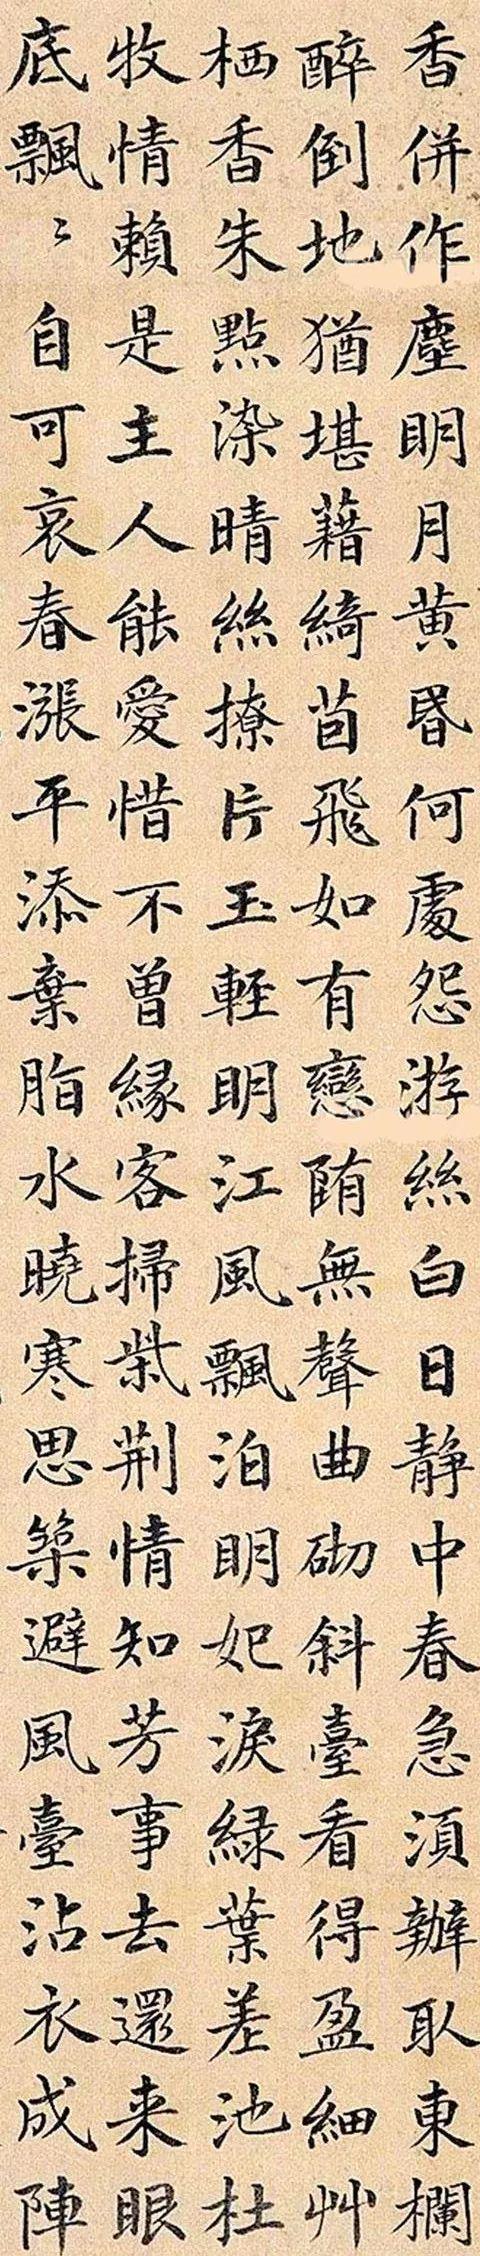 香併作塵明月黃昏何處怨游絲白日静中春急須辦取東欄
醉倒地猶堪藉綺茵飛如有戀墮無聲曲砌斜臺看得盈細艸
栖香朱點染晴絲撩片玉輕明江風飄泊明妃淚緑葉差池杜
牧情賴是主人能愛惜不曾緣客掃柴荆情知芳事去還来眼
底飄〻自可哀春漲平添棄脂水曉寒思築避風臺沾衣成陣